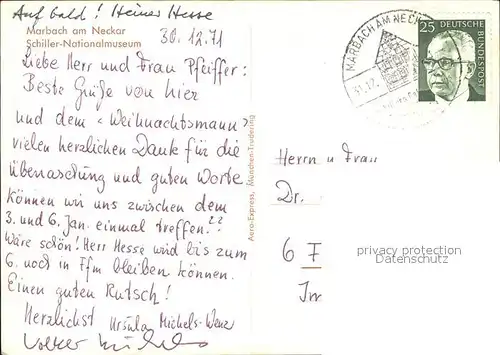 Auf bald! Heiner Hesse
Marbach am Neckar
Schiller-Nationalmuseum
30.12.71
Liebe Herr und Frau Pfeiffer:
Beste Grüße von hier
und dem „Weihnachtsmann"
vielen herzlichen Dank für die
Überraschung und guten Worte
Können wir uns zwischen dem
3. und 6. Jan. einmal treffen??
Wäre schön! Herr Hesse wird bis zum
6. noch in Ffm bleiben können.
Einen guten Rutsch!
Herzlichst Ursula Michels-Wenz
Volker Michels
Aero-Express, München-Trudering
MARBACH AM NECKAR
31.12.
25
DEUTSCHE
BUNDESPOST
Herrn u Frau
Dr.
6 F
Im
privacy protection
Datenschutz